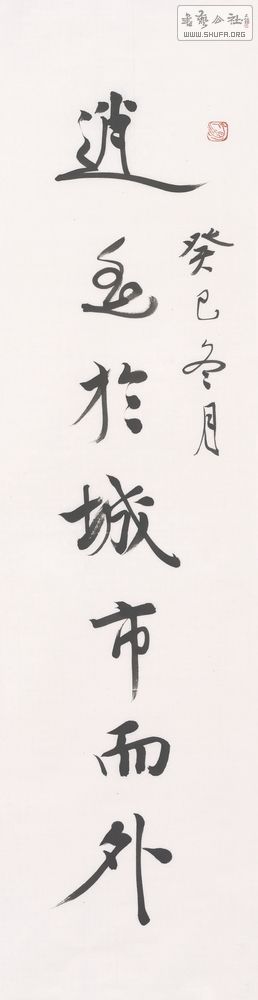 書藝公社
WWW.SHUFA.ORG
癸巳冬月
逍遙於城市而外